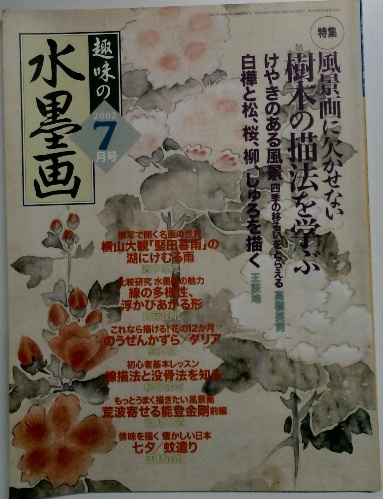 趣味の
水墨画
2002
7
月号
特集
風景画に欠かせない
樹木の描法を学ぶ
けやきのある風景 四季の移ろいをとらえる
白樺と松、桜、柳、しゅろを描く
模写で開く名画の世界
横山大観「堅田暮雨」の
湖にけむる雨
比較研究 水墨画の魅力
線の多様性、
浮かびあがる形
これなら描ける!花の12か月
のうぜんかずら/ダリア
初心者基本レッスン
線描法と没骨法を知る
もっとうまく描きたい風景画
荒波寄せる能登金剛 前編
俳味を描く 懐かしい日本
七夕/蚊遣り